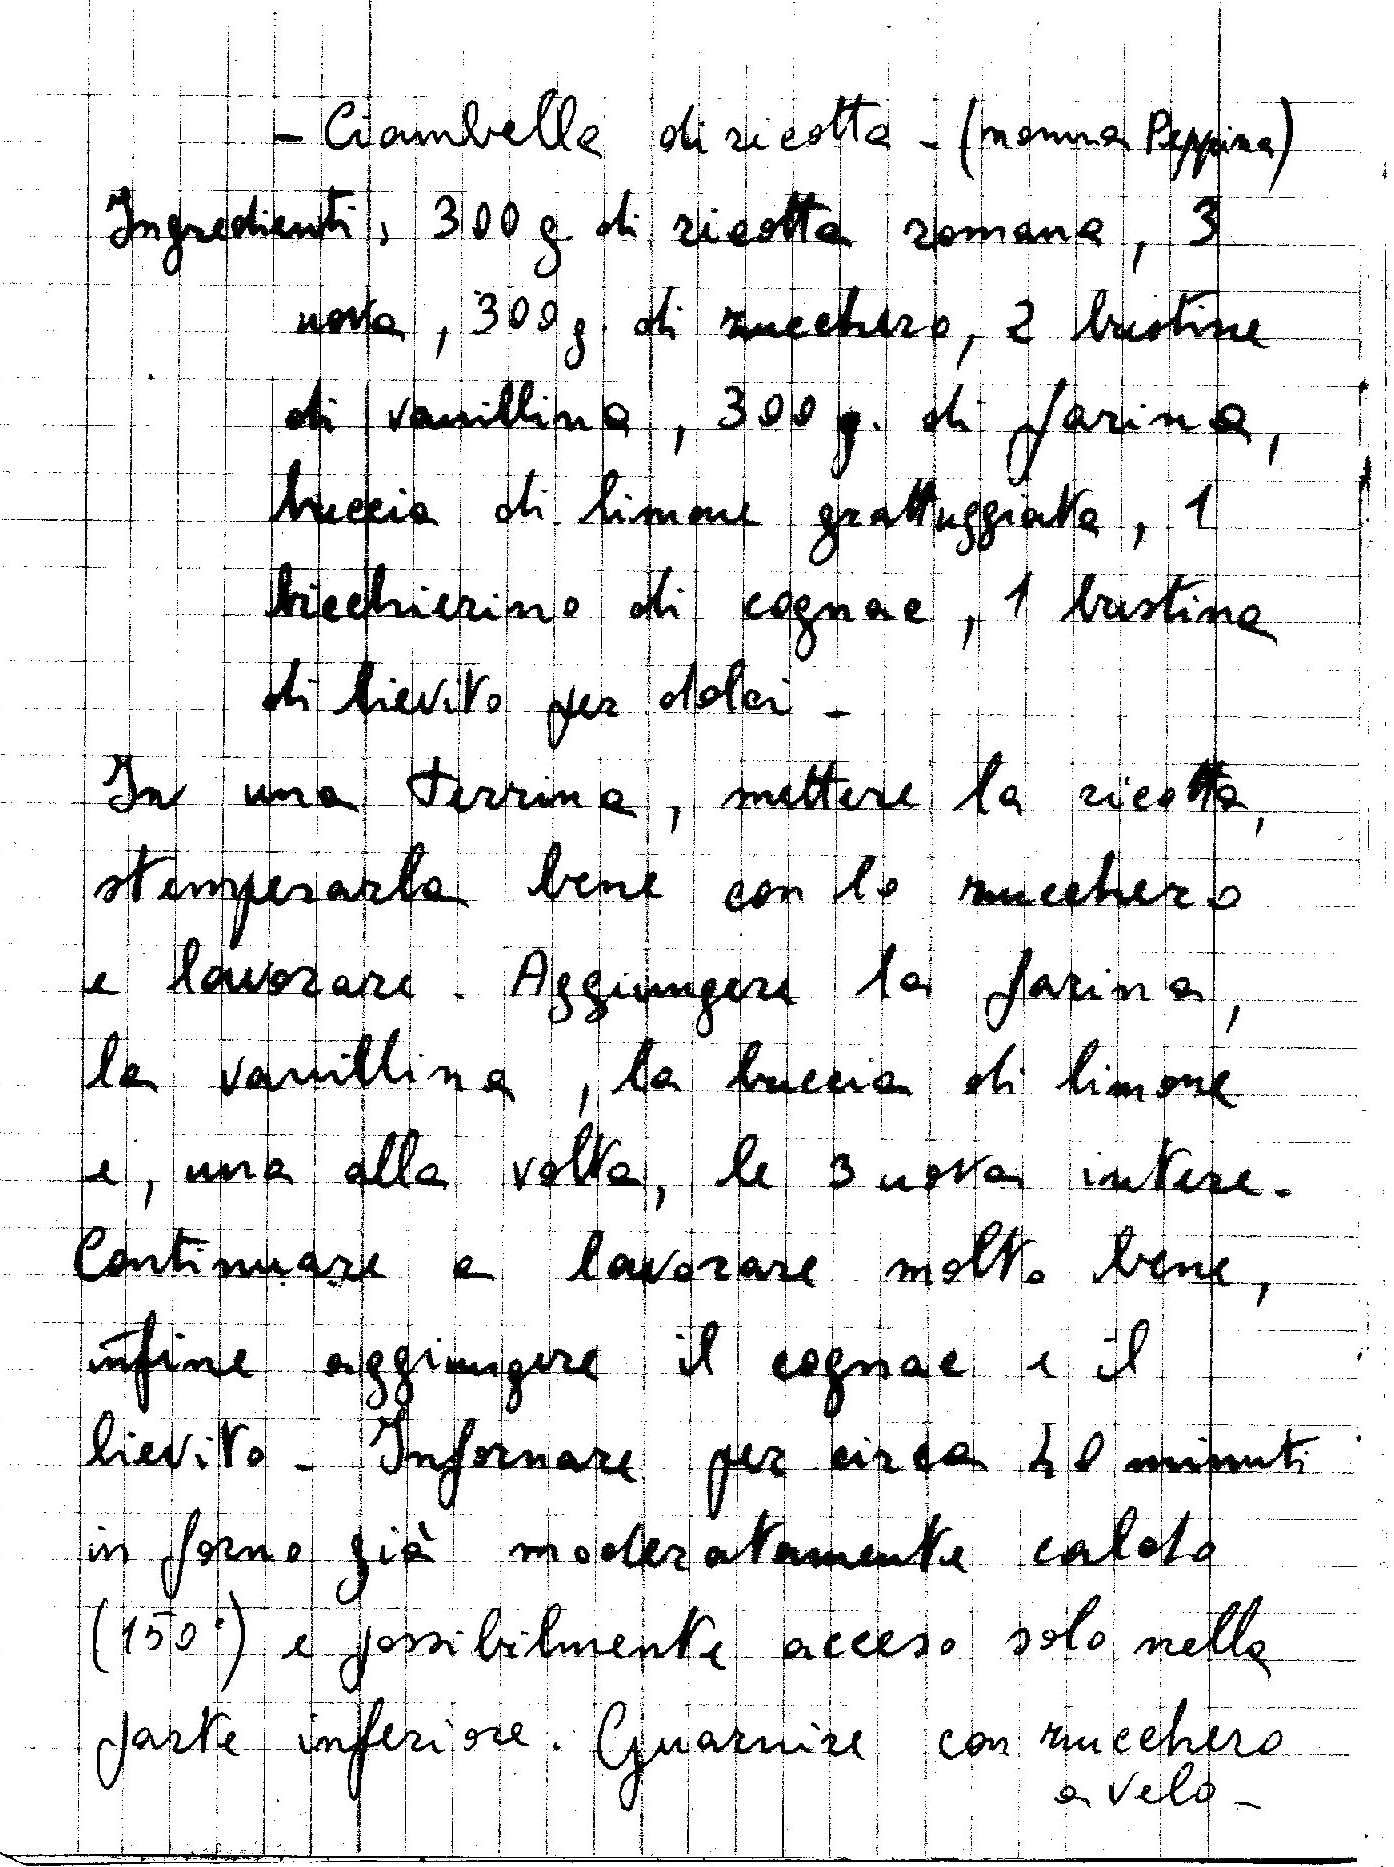 - Ciambella di ricotta - (nonna Peppina)
Ingredienti: 300 g. di ricotta romana, 3
uova, 300 g. di zucchero, 2 bustine
di vanillina, 300 g. di farina,
buccia di limone grattuggiata, 1
bicchierino di cognac, 1 bustina
di lievito per dolci -
In una terrina, mettere la ricotta,
stemperarla bene con lo zucchero
e lavorare. Aggiungere la farina,
la vanillina, la buccia di limone
e, una alla volta, le 3 uova intere.
Continuare a lavorare molto bene,
infine aggiungere il cognac e il
lievito - Infornare per circa 40 minuti
in forno già moderatamente caldo
(150°) e possibilmente acceso solo nella
parte inferiore. Guarnire con zucchero
a velo -